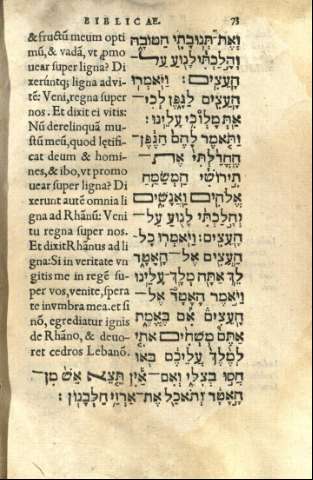 BIBLICAE. 73
& fructũ meum opti
mũ, & vadã, vt ꝓmo
uear super ligna? Di
xerũntq; ligna advi
tẽ: Veni, regna super
nos. Et dixit ei vitis:
Nũ derelinquã mu-
stũ meũ, quod lętifi-
cat deum & homi-
nes, & ibo, vt promo
uear super ligna? Di
xerunt autẽ omnia li
gna ad Rhãnũ: Veni
tu regna super nos.
Et dixit Rhãnus ad li
gna: Si in veritate vn
gitis me in regẽ su-
per vos, venite, spera
te invmbra mea. et si
nõ, egrediatur ignis
de Rhãno, & deuo-
ret cedros Lebanõ.
וְאֶת־תְּנוּבָתִי הַטּוֹבָה
וְהָלַכְתִּי לָנוּעַ עַל־
הָעֵצִים׃ וַיֹּאמְרוּ
הָעֵצִים לַגֶּפֶן לְכִי־
אַתְּ מָלְוֹכִי עָלֵינוּ׃
וַתֹּאמֶר לָהֶם הַגֶּפֶן
הֶחֳדַלְתִּי אֶת־
תִּירוֹשִׁי הַמְשַׂמֵּחַ
אֱלֹהִים וַאֲנָשִׁים
וְהָלַכְתִּי לָנוּעַ עַל־
הָעֵצִים׃ וַיֹּאמְרוּ כָל־
הָעֵצִים אֶל־הָאָטָד
לֵךְ אַתָּה מְלָךְ־עָלֵינוּ
וַיֹּאמֶר הָאָטָד אֶל־
הָעֵצִים אִם בֶּאֱמֶת
אַתֶּם מֹשְׁחִים אֹתִי
לְמֶלֶךְ עֲלֵיכֶם בֹּאוּ
חֲסוּ בְצִלִּי וְאִם־אַיִן תֵּצֵא אֵשׁ מִן־
הָאָטָד וְתֹאכַל אֶת־אַרְזֵי הַלְּבָנוֹן׃